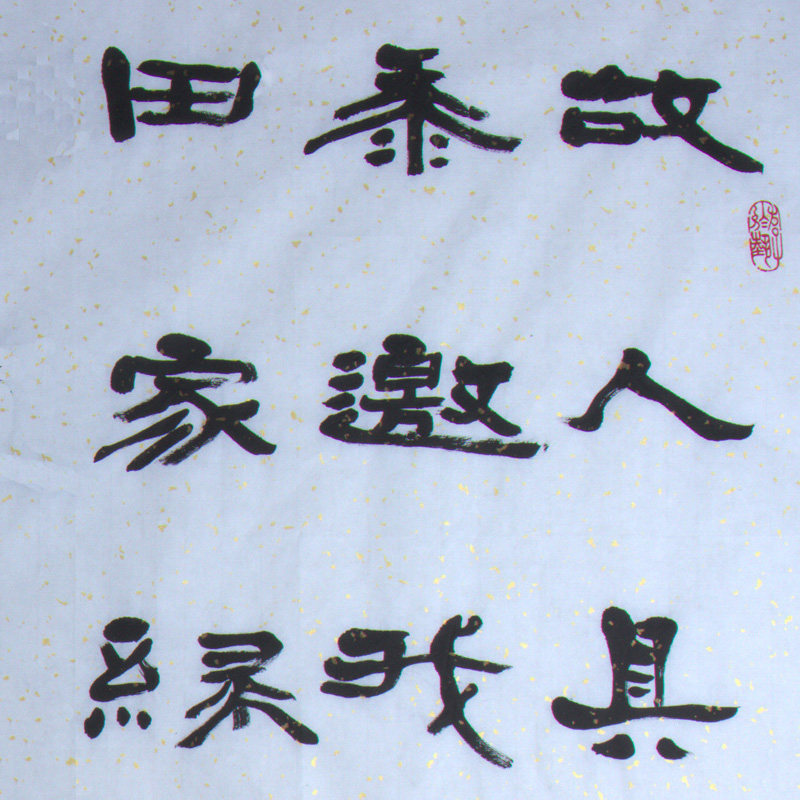 故人具
黍邀我
田家緑